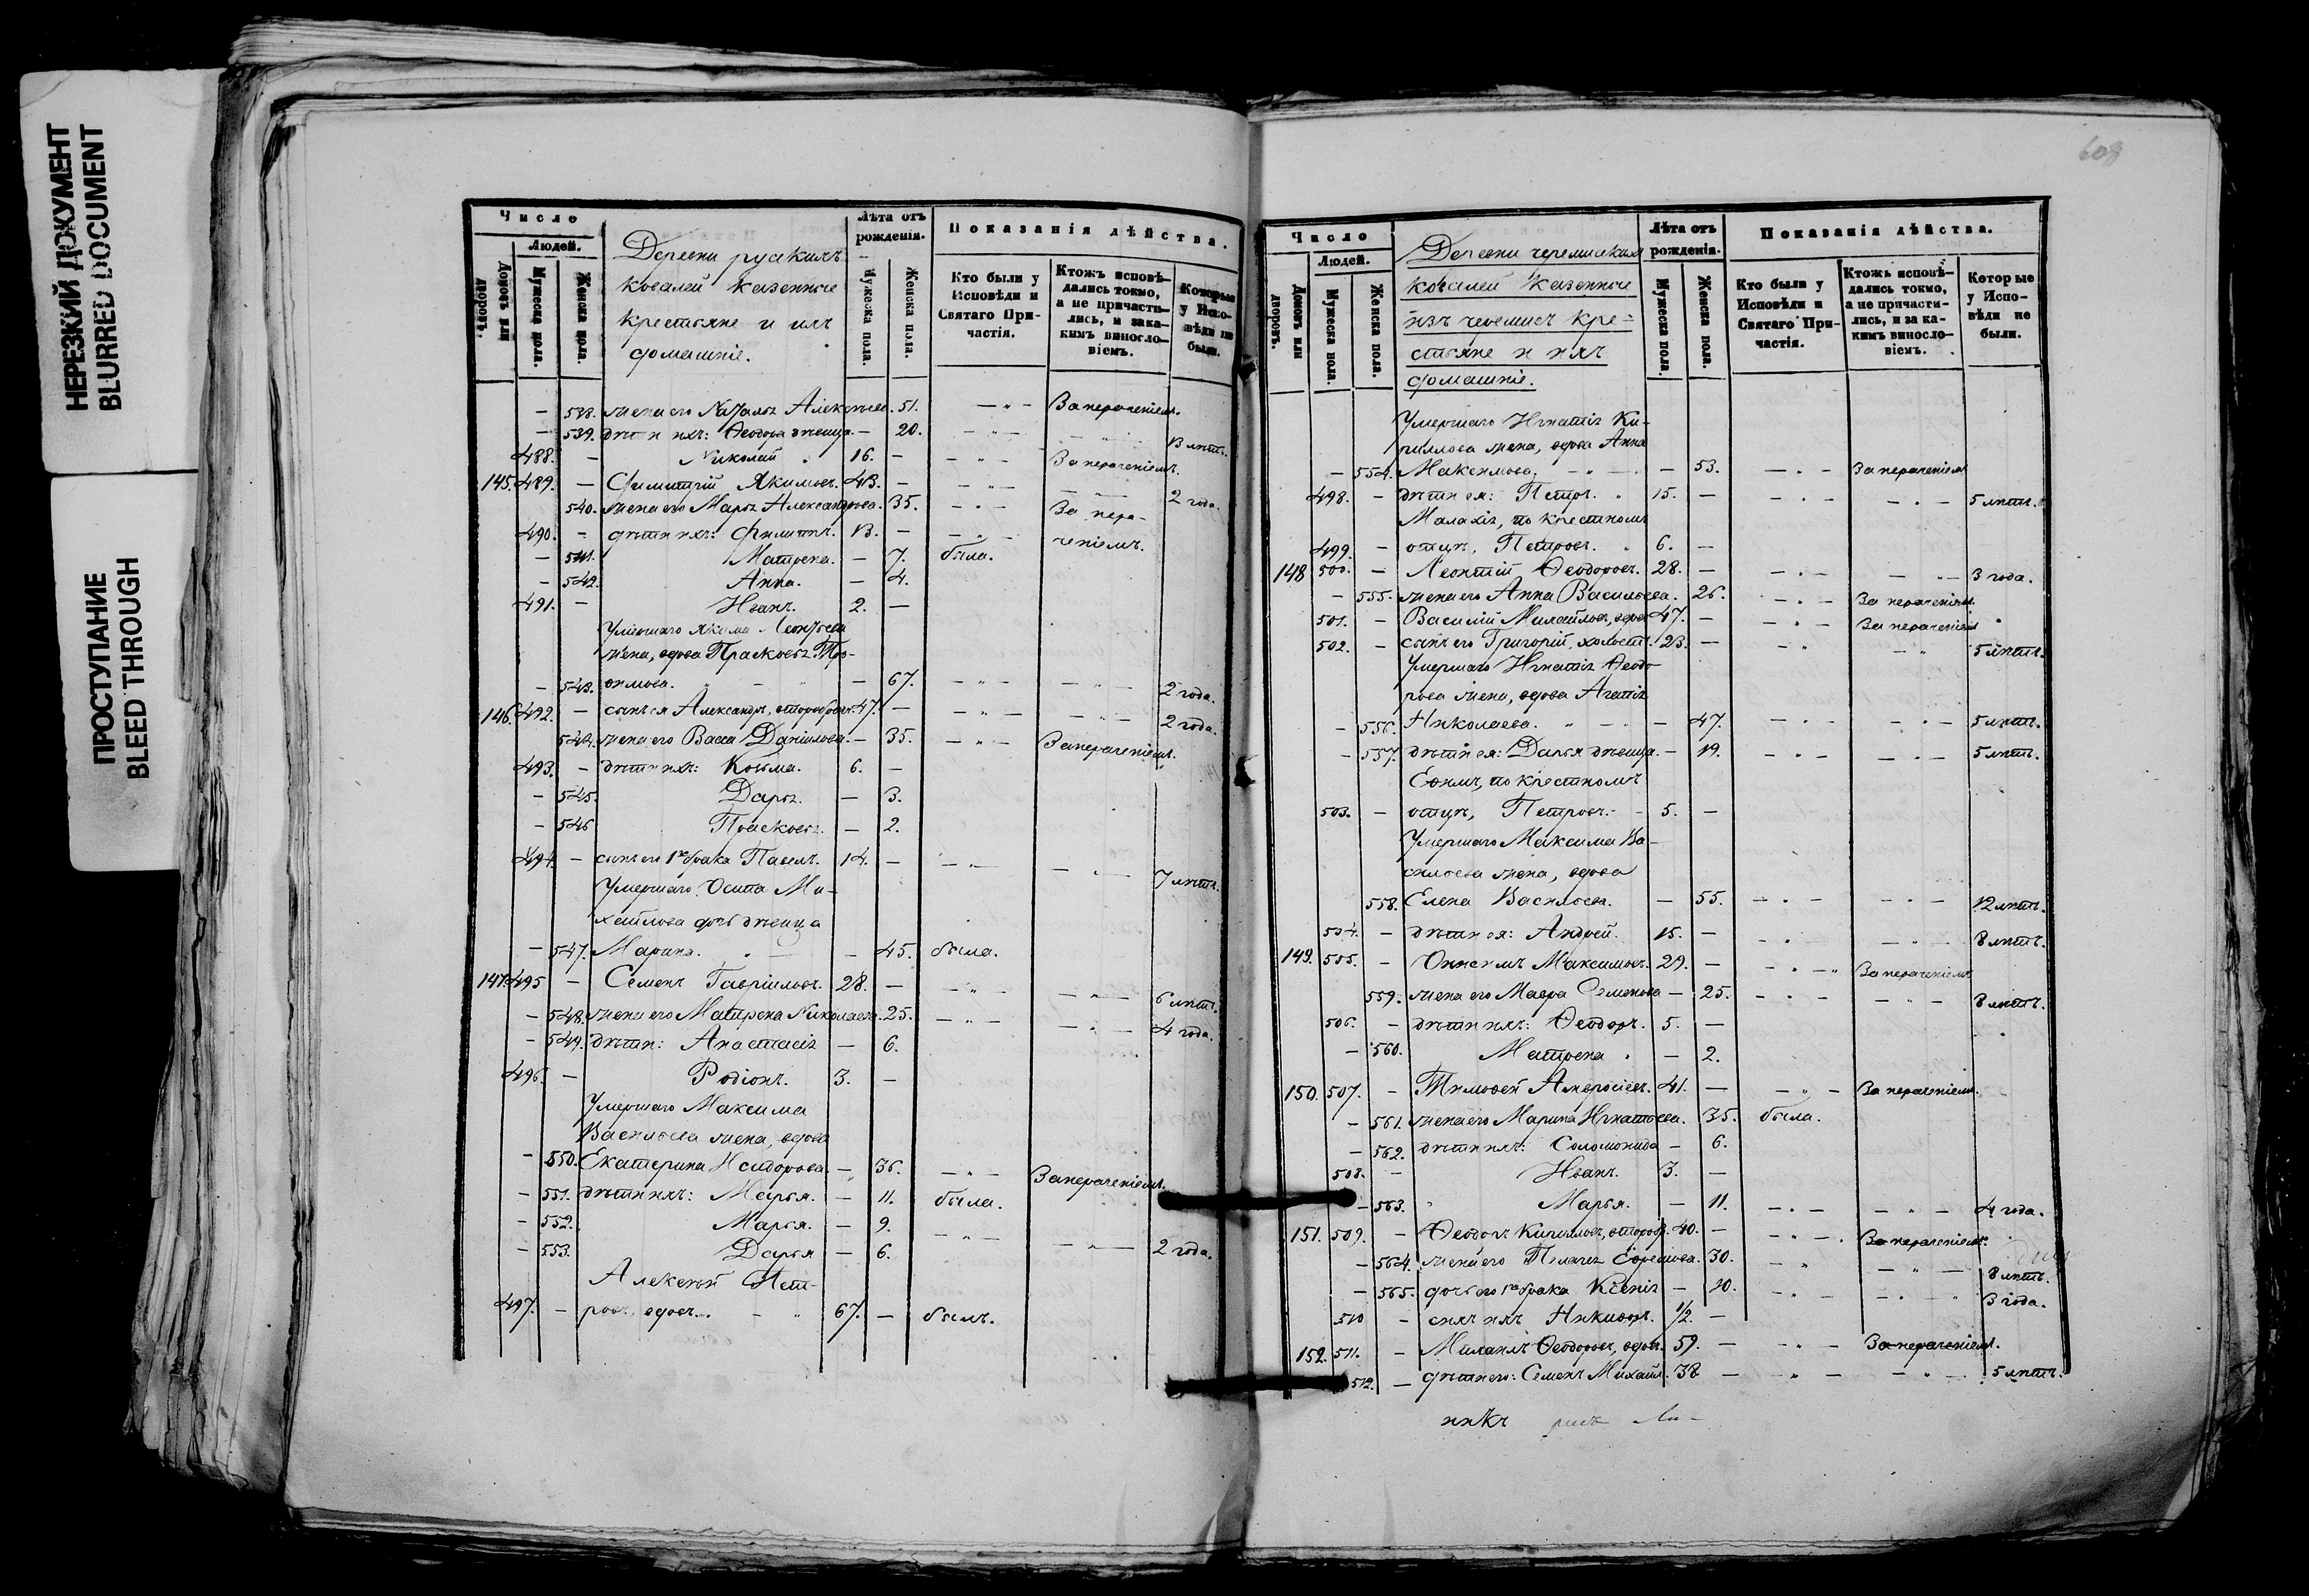 НЕРЕЗКИЙ ДОКУМЕНТ
BLURRED DOCUMENT
ПРОСТУПАНИЕ
BLEED THROUGH
Число
Людей.
Домовъ или дворовъ.
Мужеска пола.
Женска пола.
Деревни рускихъ
ковалей казенные
крестьяне и ихъ
домашніе.
Лѣта отъ рожденія.
Мужеска пола.
Женска пола.
Показанія дѣйства.
Кто были у Исповѣди и Святаго Причастія.
Ктожъ исповѣ-
дались токмо,
а не причасти-
лись, и зака-
кимъ винносло-
віемъ.
Которые
у Испо-
вѣди не
были.
— 538. жена его Наталья Алексѣева. 51. — „ — За нераченіемъ.
— 539. дѣти ихъ: Ѳеодора дѣвица. — 20. — „ — 13 лѣтъ.
488. — Николай 16. — — „ — За нераченіемъ.
145. 489. — Димитрій Якимовъ. 43. — — „ — 2 года.
540. жена его Марѳа Александрова. 35. — „ — За нера-
ченіемъ.
490. — дѣти ихъ: Филиппъ. 13. — — „ —
— 541. Матрена. — 7. была.
— 542. Анна. — 4.
491. — Иванъ. 2. —
Умершаго Якима Леонтьева
жена, вдова Прасковья Тро-
— 543. фимова. — 67. — „ — — „ — 2 года.
146. 492. — сынъ ея Александръ, второбрач. 47. — — „ — — „ — 2 года.
544. жена его Васса Даніилова. — 35. — „ — За нераченіемъ.
493. — дѣти ихъ: Косьма. 6. —
— 545. Дарья. — 3.
— 546 Прасковья. — 2.
494. — сынъ его 1го брака Павелъ. 14. — — „ — — „ — 7 лѣтъ.
Умершаго Осипа Ми-
хайлова дочь дѣвица
— 547. Марина. — 45. была.
147. 495 — Семенъ Гавріиловъ. 28. — — „ — — „ — 6 лѣтъ.
— 548. жена его Матрена Николаева. 25. — „ — — „ — 4 года.
— 549. дѣти: Анастасія — 6.
496. — Родіонъ. 3. —
Умершаго Максима
Васильева жена, вдова
— 550. Екатерина Исидорова. — 36. — „ — За нераченіемъ.
— 551. дѣти ихъ: Марья. — 11. была.
— 552. Марья. — 9. — „ —
— 553. Дарья — 6. — „ — 2 года.
Алексѣй Пет-
497. — ровъ, вдовъ. 67. — былъ.
608
Число
Людей.
Домовъ или дворовъ.
Мужеска пола.
Женска пола.
Деревни черемискихъ
ковалей казенные
изъ черемисъ кре-
стьяне и ихъ
домашніе.
Лѣта отъ рожденія.
Мужеска пола.
Женска пола.
Показанія дѣйства.
Кто были у Исповѣди и Святаго Причастія.
Ктожъ исповѣ-
дались токмо,
а не причасти-
лись, и за ка-
кимъ винносло-
віемъ.
Которые
у Испо-
вѣди не
были.
Умершаго Игнатія Ки-
риллова жена, вдова Анна
— 554. Максимова. — 53. — „ — За нераченіемъ
498. — дѣти ея: Петръ. 15. — — „ — — „ — 5 лѣтъ.
Малахія, по крестномъ
499. — отцѣ, Петровъ. 6. —
148 500. — Леонтій Ѳеодоровъ. 28. — — „ — — „ — 3 года.
— 555. жена его Анна Васильева. 26. — „ — За нераченіемъ.
501. — Василій Михайловъ, вдовъ 47. — — „ — За нераченіемъ
502. — сынъ его Григорій, холостъ. 23. — — „ — „ 5 лѣтъ.
Умершаго Игнатія Ѳеодо-
рова жена, вдова Агаѳія
— 556. Николаева. — 47. — „ — — „ — 5 лѣтъ.
— 557. дѣти ея: Дарья дѣвица. — 19. — „ — — „ — 5 лѣтъ.
Ефимъ, по крестномъ
503. — отцѣ, Петровъ. 5. —
Умершаго Максима Ва-
сильева жена, вдова
558. Елена Васильева. — 55. — „ — — „ — 12 лѣтъ.
504. — дѣти ея: Андрей. 15. — — „ — — „ — 8 лѣтъ.
149. 505. — Онисимъ Максимовъ. 29. — — „ — За нераченіемъ
559. жена его Мавра Семенова — 25. — „ — — „ — 8 лѣтъ.
506. — дѣти ихъ: Ѳеодоръ. 5. —
— 560. Матрена — 2.
150. 507. — Тимоѳей Амвросіевъ. 41. — — „ — За нераченіемъ.
— 561. жена его Марина Игнатьева. 35. была.
— 562. дѣти ихъ: Соломонида — 6.
508. — Иванъ. 3. —
— 563. Марья. — 11. — „ — — „ — 4 года.
151. 509. — Ѳеодоръ Кирилловъ, второбр. 40. — — „ — За нераченіемъ.
— 564. жена его Пелагея Ефремова. 30. — „ — „ — 8 лѣтъ.
— 565. дочь его 1го брака Ксенія — 10. — „ — — „ 3 года.
510 — сынъ ихъ Никифоръ. 1/2. —
152. 511. — Михаилъ Ѳеодоровъ, вдовъ. 59. — — „ — За нераченіемъ.
512. — дѣти его: Семенъ Михайл. 38 — — „ — — „ — 5 лѣтъ.